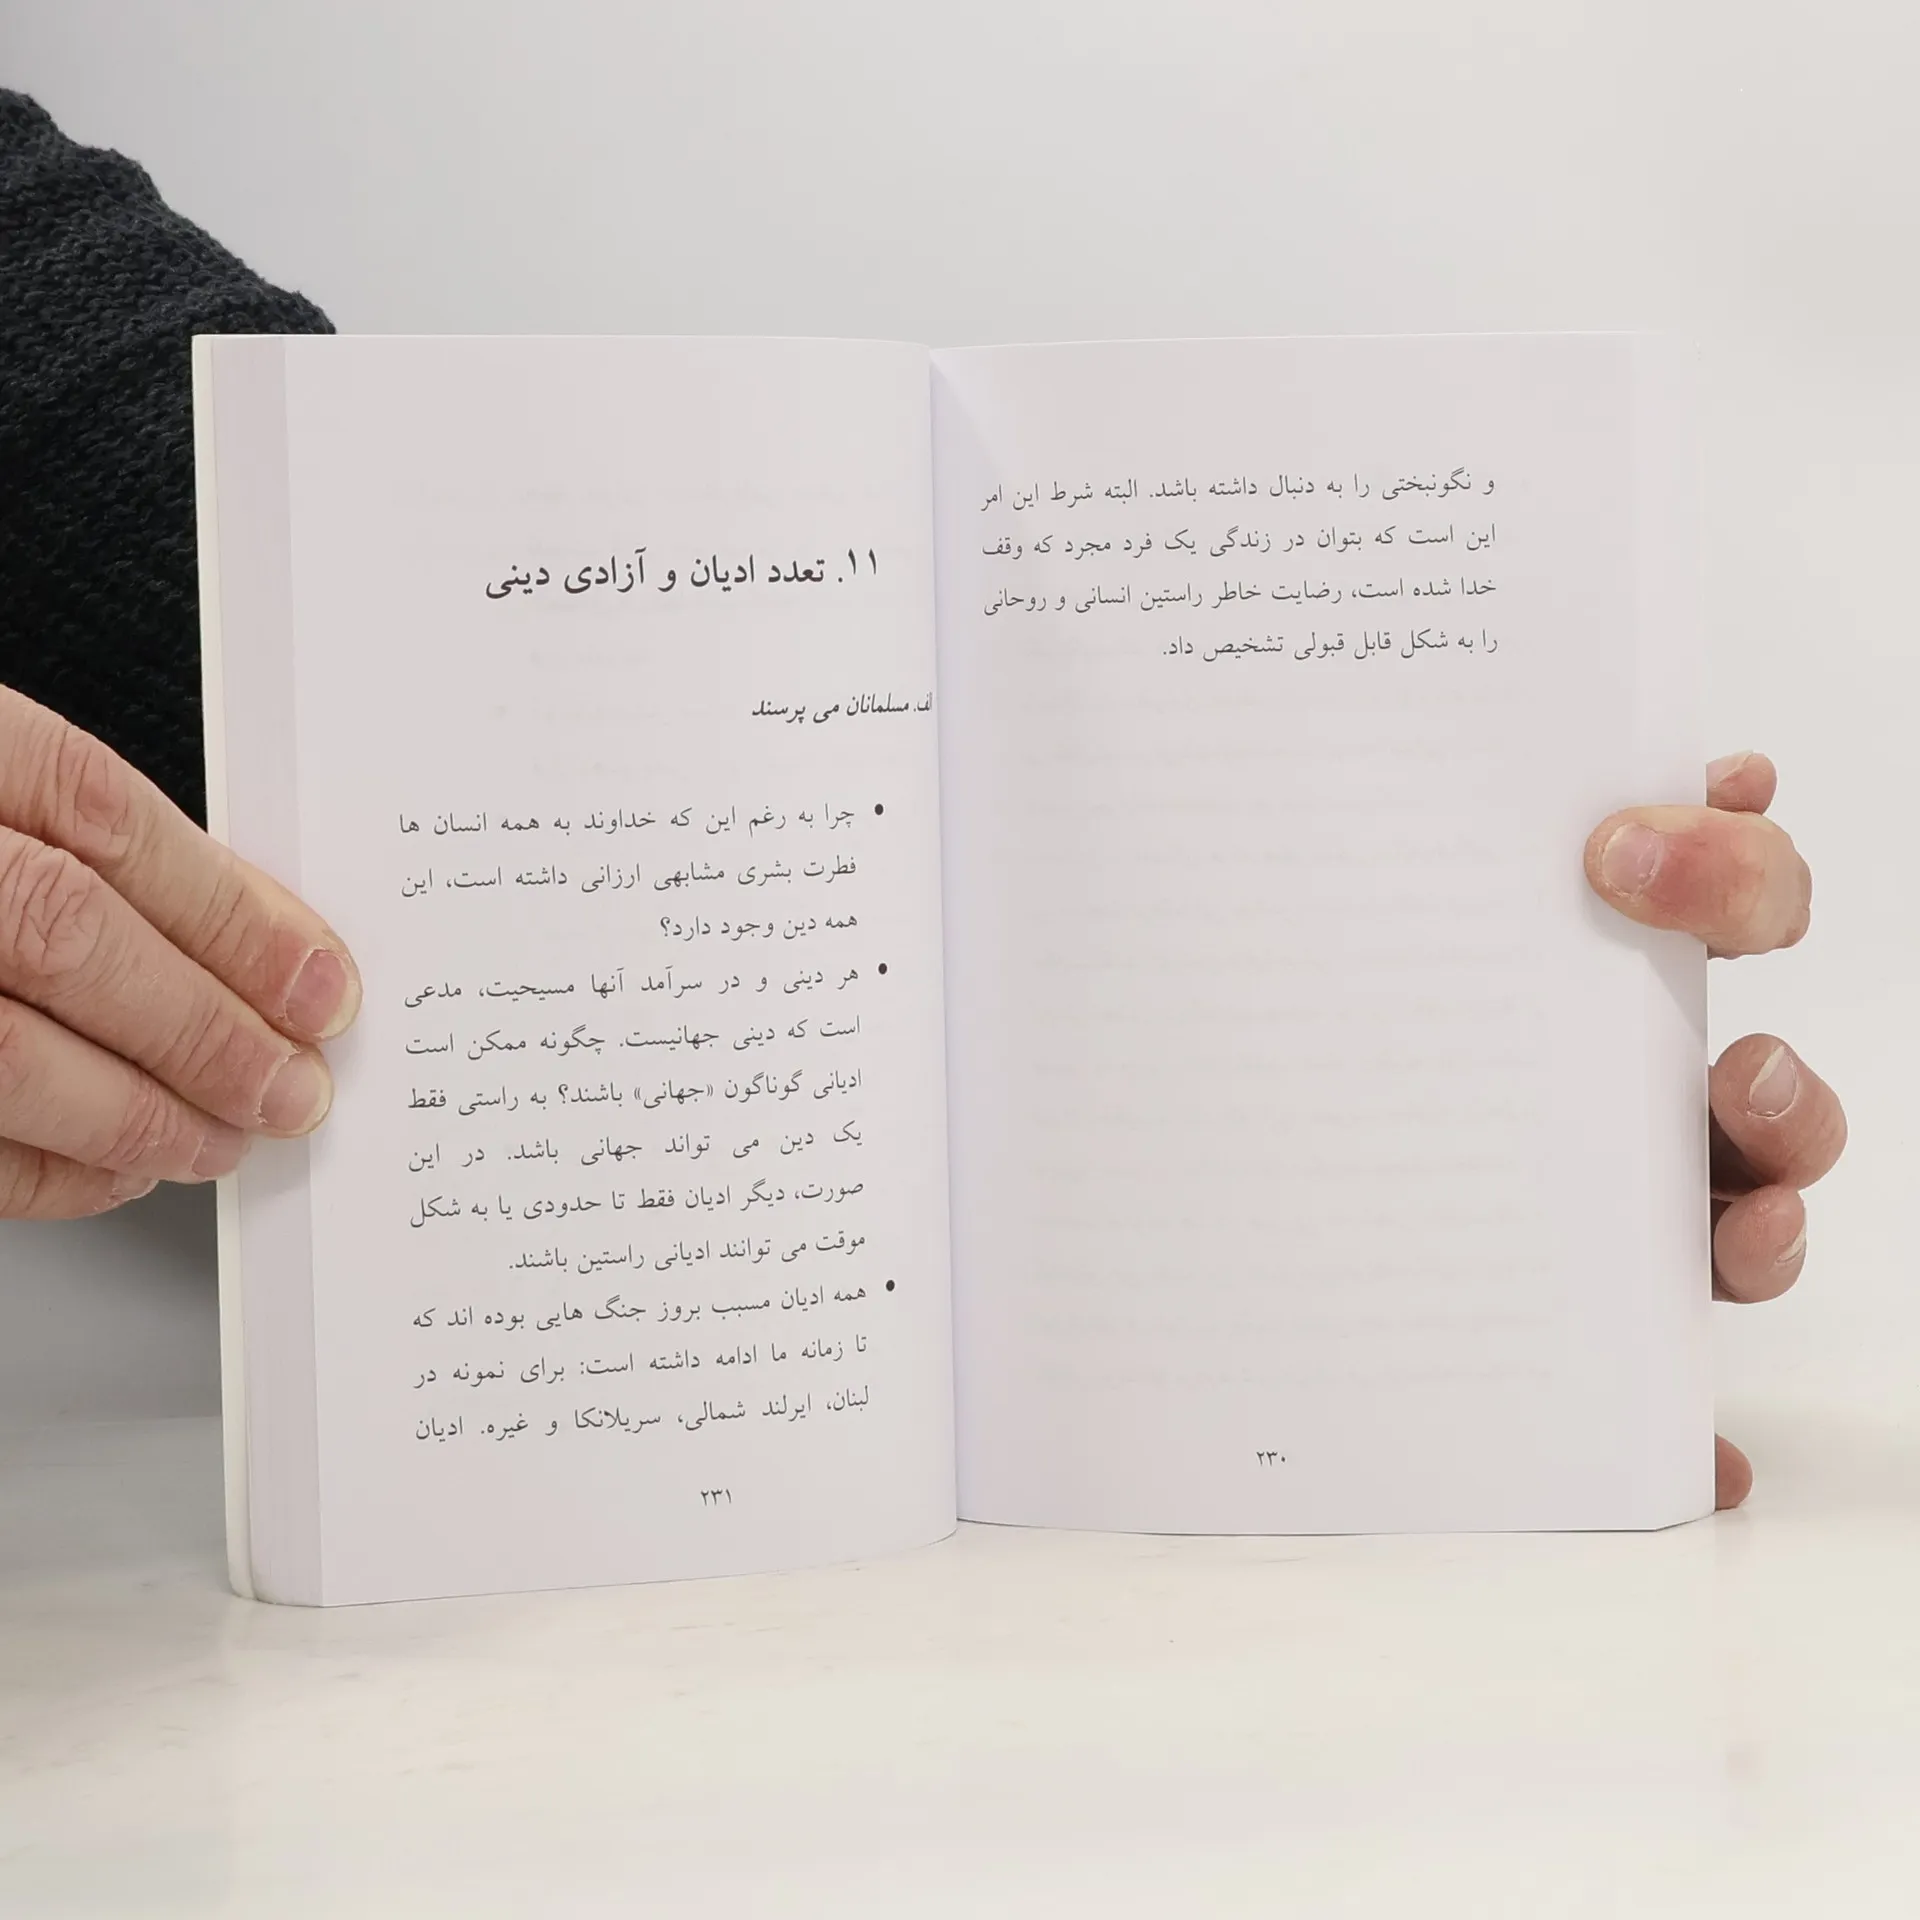 و نگونبختی را به دنبال داشته باشد. البته شرط این امر
این است که بتوان در زندگی یک فرد مجرد که وقف
خدا شده است، رضایت خاطر راستین انسانی و روحانی
را به شکل قابل قبولی تشخیص داد.
۲۳۰
۱۱. تعدد ادیان و آزادی دینی
الف. مسلمانان می پرسند
• چرا به رغم این که خداوند به همه انسان ها
فطرت بشری مشابهی ارزانی داشته است، این
همه دین وجود دارد؟
• هر دینی و در سرآمد آنها مسیحیت، مدعی
است که دینی جهانیست. چگونه ممکن است
ادیانی گوناگون «جهانی» باشند؟ به راستی فقط
یک دین می تواند جهانی باشد. در این
صورت، دیگر ادیان فقط تا حدودی یا به شکل
موقت می توانند ادیانی راستین باشند.
• همه ادیان مسبب بروز جنگ هایی بوده اند که
تا زمانه ما ادامه داشته است: برای نمونه در
لبنان، ایرلند شمالی، سریلانکا و غیره. ادیان
۲۳۱